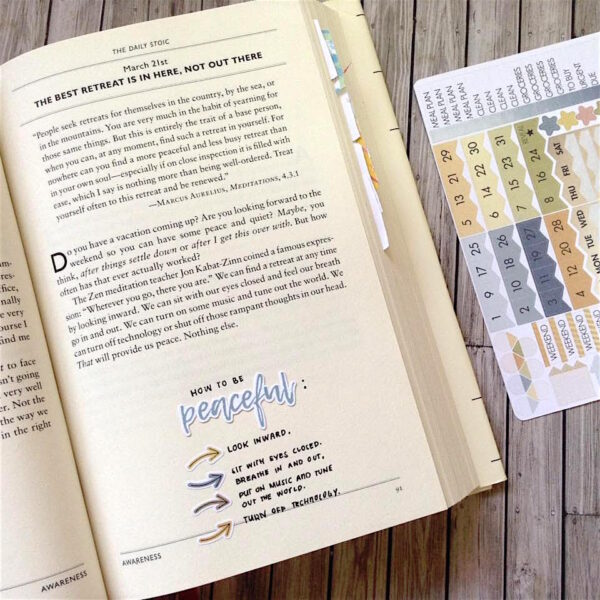 THE DAILY STOIC
March 21st
THE BEST RETREAT IS IN HERE, NOT OUT THERE
“People seek retreats for themselves in the country, by the sea, or
in the mountains. You are very much in the habit of yearning for
those same things. But this is entirely the trait of a base person,
when you can, at any moment, find such a retreat in yourself. For
nowhere can you find a more peaceful and less busy retreat than
in your own soul—especially if on close inspection it is filled with
ease, which I say is nothing more than being well-ordered. Treat
yourself often to this retreat and be renewed.”
—MARCUS AURELIUS, MEDITATIONS, 4.3.1
Do you have a vacation coming up? Are you looking forward to the
weekend so you can have some peace and quiet? Maybe, you
think, after things settle down or after I get this over with. But how
often has that ever actually worked?
The Zen meditation teacher Jon Kabat-Zinn coined a famous expres-
sion: “Wherever you go, there you are.” We can find a retreat at any time
by looking inward. We can sit with our eyes closed and feel our breath
go in and out. We can turn on some music and tune out the world. We
can turn off technology or shut off those rampant thoughts in our head.
That will provide us peace. Nothing else.
HOW TO BE
peaceful:
LOOK INWARD.
SIT WITH EYES CLOSED.
BREATHE IN AND OUT,
PUT ON MUSIC AND TUNE
OUT THE WORLD.
TURN OFF TECHNOLOGY.
91
AWARENESS
to face
isn't going
very well
er. Not the
the way we
in the right
AWARENESS
MEAL PLAN
MEAL PLAN
MEAL PLAN
CLEAN
CLEAN
CLEAN
CLEAN
GROCERIES
GROCERIES
GROCERIES
TO BUY
URGENT
DUE
5 13 21 29
6 14 22 30
7 15 23 31
8 16 24
SAT
FRI
THU
WED
TUE
MON
1 9 17 25
2 10 18 26
3 11 19 27
4 12 20 28
WEEKEND
WEEKEND
WEEKEND